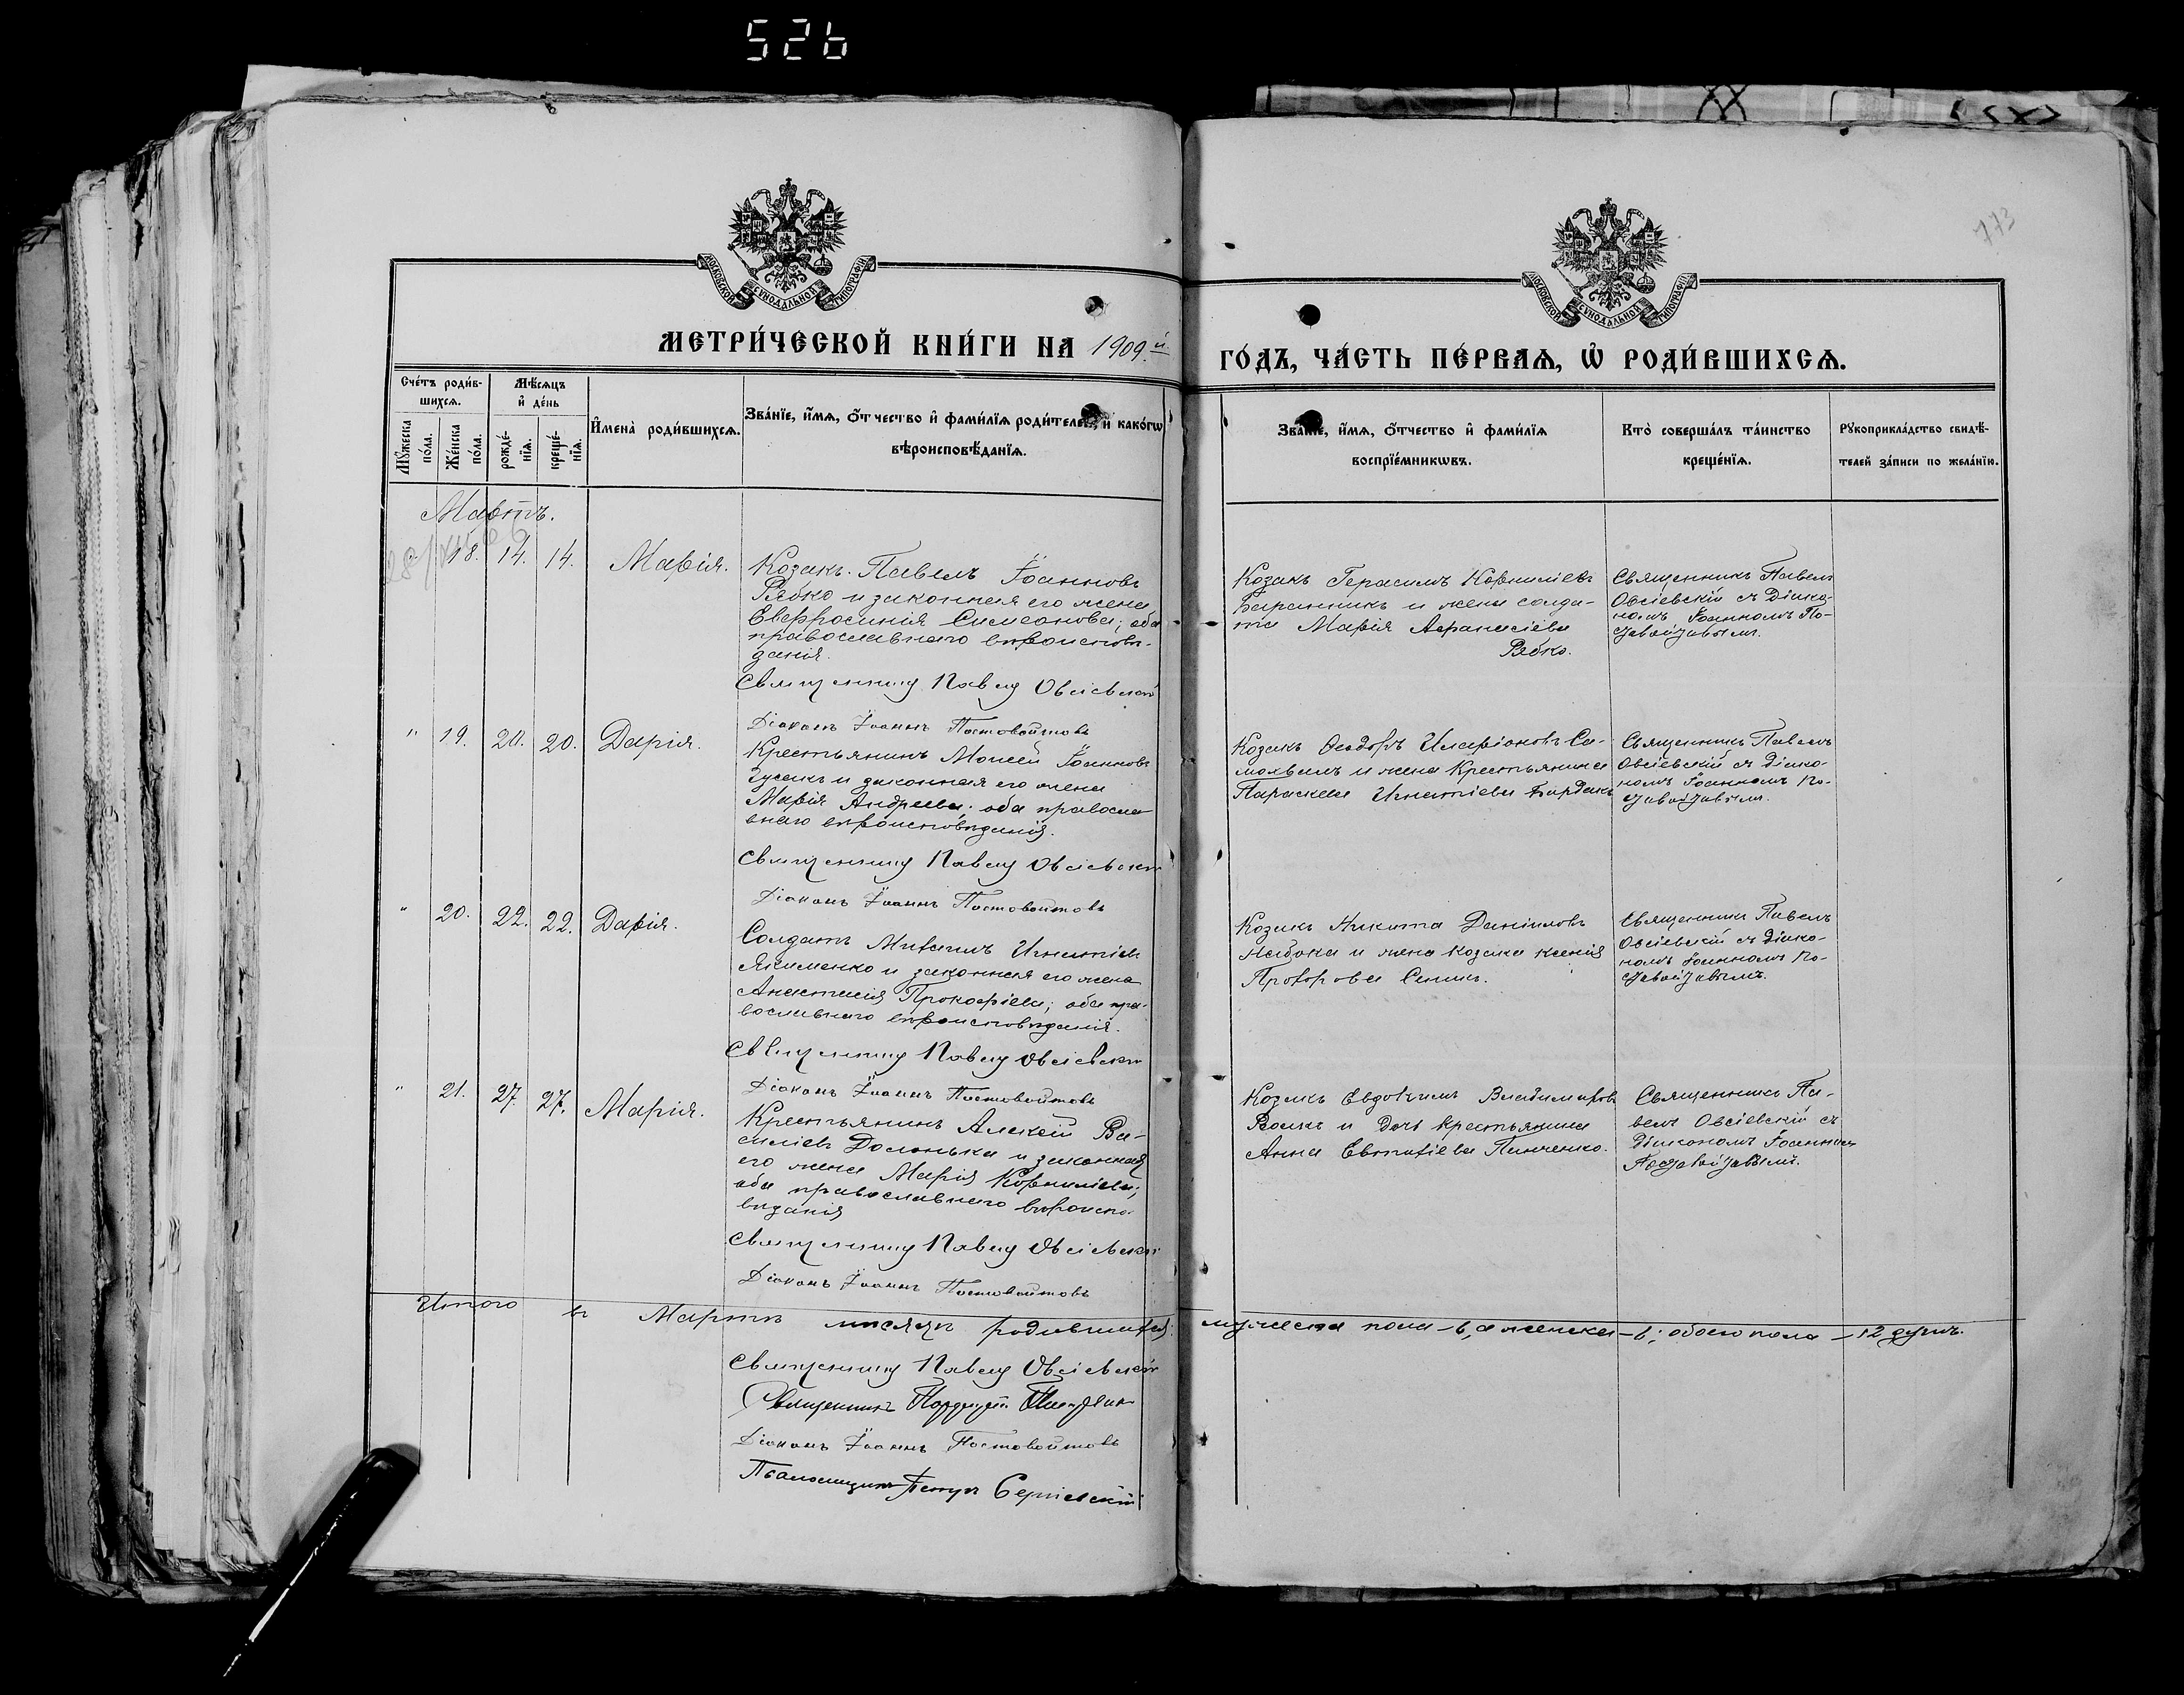 526
773
МОСКОВСКОЙ СѴНОДАЛЬНОЙ ТИПОГРАФІИ
МОСКОВСКОЙ СѴНОДАЛЬНОЙ ТИПОГРАФІИ
МЕТРИ́ЧЕСКОЙ КНИ́ГИ НА 1909.й
ГО́ДЪ, ЧА́СТЬ ПЕ́РВАЯ, Ѡ҆ РОДИ́ВШИХСЯ.
Сче́тъ роди́в-
шихся.
Мѣ́сяцъ
и҆ де́нь
Мꙋ́жеска
по́ла.
Же́нска
по́ла.
рожде́-
нїя.
креще́-
нїя.
И҆мена̀ роди́вшихся.
Зва́нїе, и҆́мя, ѻ҆́тчество и҆ фами́лїя роди́телей, и҆ како́гѡ
вѣроисповѣ́данїя.
Зва́нїе, и҆́мя, ѻ҆́тчество и҆ фами́лїя
воспрїе́мникѡвъ.
Кто̀ соверша́лъ та́инство
креще́нїя.
Рꙋкоприкла́дство свидѣ́-
телей за́писи по жела́нїю.
Мартъ.
18. 14. 14. Марія.
Козакъ Павелъ Іоанновъ
Рябко и законная его жена
Евфросинія Симеонова; оба
православнаго вѣроисповѣ-
данія.
Священникъ Павелъ Овсіевскій
Діаконъ Іоаннъ Постовойтовъ
Козакъ Герасимъ Корниліевъ
Баранникъ и жена солда-
та Марія Афанасіева
Рябко.
Священникъ Павелъ
Овсіевскій съ Діако-
номъ Іоанномъ По-
стовойтовымъ.
" 19. 20. 20. Дарія.
Крестьянинъ Моисей Іоанновъ
Гусакъ и законная его жена
Марія Андреева; оба правосла
внаго вѣроисповѣданія.
Священникъ Павелъ Овсіевскій
Діаконъ Іоаннъ Постовойтовъ
Козакъ Ѳеодоръ Иларіоновъ Са-
мохвалъ и жена Крестьянина
Параскева Игнатіева Бардакъ
Священникъ Павелъ
Овсіевскій съ Діако-
номъ Іоанномъ По-
стовойтовымъ.
" 20. 22. 22. Дарія.
Солдатъ Михаилъ Игнатіевъ
Якименко и законная его жена
Анастасія Прокофіева; оба пра-
вославнаго вѣроисповѣданія.
Священникъ Павелъ Овсіевскій
Діаконъ Іоаннъ Постовойтовъ
Козакъ Никита Даніиловъ
Набока и жена козака Ксенія
Прохорова Сеникъ.
Священникъ Павелъ
Овсіевскій съ Діако-
номъ Іоанномъ По-
стовойтовымъ.
" 21. 27. 27. Марія.
Крестьянинъ Алексѣй Ва-
силіевъ Долонька и законная
его жена Марія Корниліева;
оба православнаго вѣроиспо-
вѣданія
Священникъ Павелъ Овсіевскій
Діаконъ Іоаннъ Постовойтовъ
Козакъ Евдокимъ Владиміровъ
Волкъ и дочь крестьянина
Анна Евтихіева Панченко.
Священникъ Па-
велъ Овсіевскій съ
Діакономъ Іоанномъ
Постовойтовымъ.
Итого въ Мартѣ мѣсяцѣ родившихся: мужеска пола – 6, а женска – 6; обоего пола – 12 душъ.
Священникъ Павелъ Овсіевскій
Священникъ
Діаконъ Іоаннъ Постовойтовъ
Псаломщикъ Петръ Сергіевскій